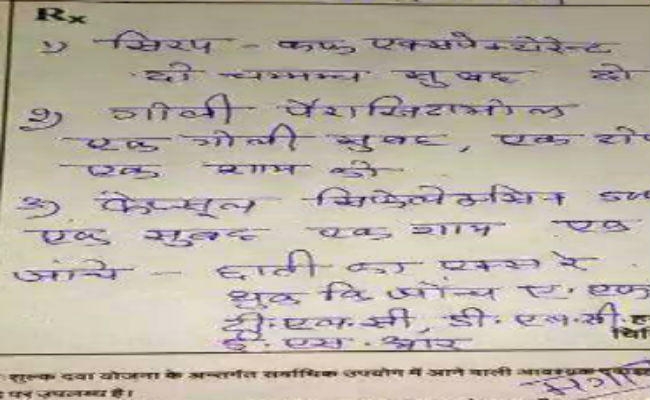 Rx
१) सिरप - कफ एक्सपेक्टोरेन्ट
दो चम्मच सुबह दो
२) गोली पैरासिटामोल
एक गोली सुबह, एक दो
एक शाम को
३) कैप्सूल सिफेलेक्सिन
एक सुबह एक शाम एक
जांचे - छाती का एक्स रे
थूक कि जाँच ए. एफ
टी. एल. सी, डी. एल. सी.
ई. एस. आर
शुल्क दवा योजना के अन्तर्गत सर्वाधिक उपयोग में आने वाली आवश्यक
पर उपलब्ध है।